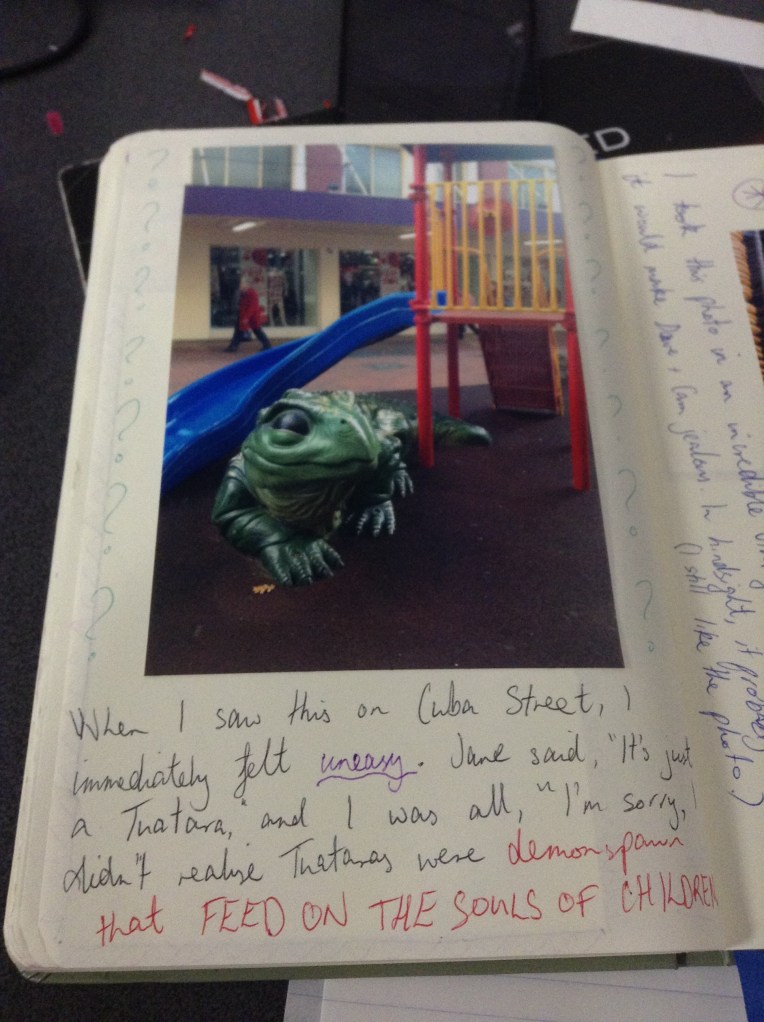 When I saw this on Cuba Street, I
immediately felt uneasy. Jane said, "It's just
a Tuatara," and I was all, "I'm sorry, I
didn't realise Tuataras were demonspawn
that FEED ON THE SOULS OF CHILDREN
I took this photo in an incredible
it would make Dave + Cam jealous. In hindsight, it probably
(I still like the photo.)
ED